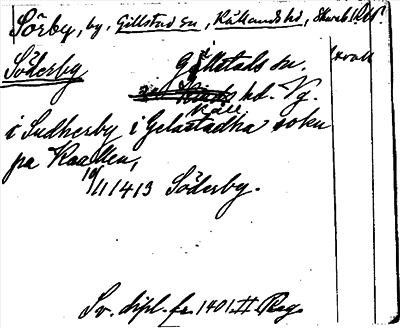 Sörby, by, Gillstad sn, Kållands hd, Skarab. län.
Söderby Gillstads sn.
Kåll hd. Vg.
i Sudherby i Gelastadha sokn
pa Kaallen,
10/11 1413 Söderby.
Sv. dipl. fr. 1401. II. Reg.